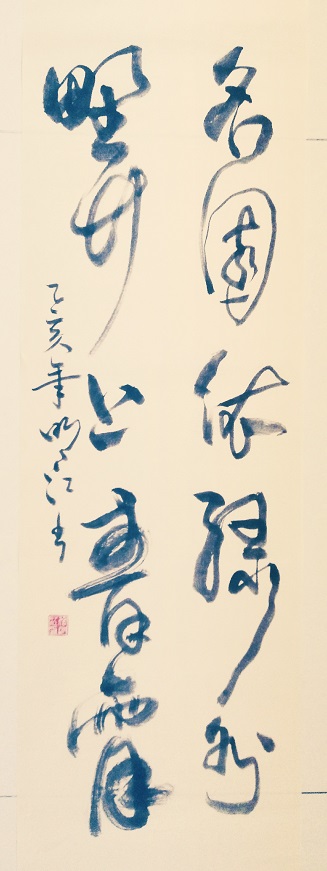 名園依綠水
野竹上青霄
乙亥年明江书